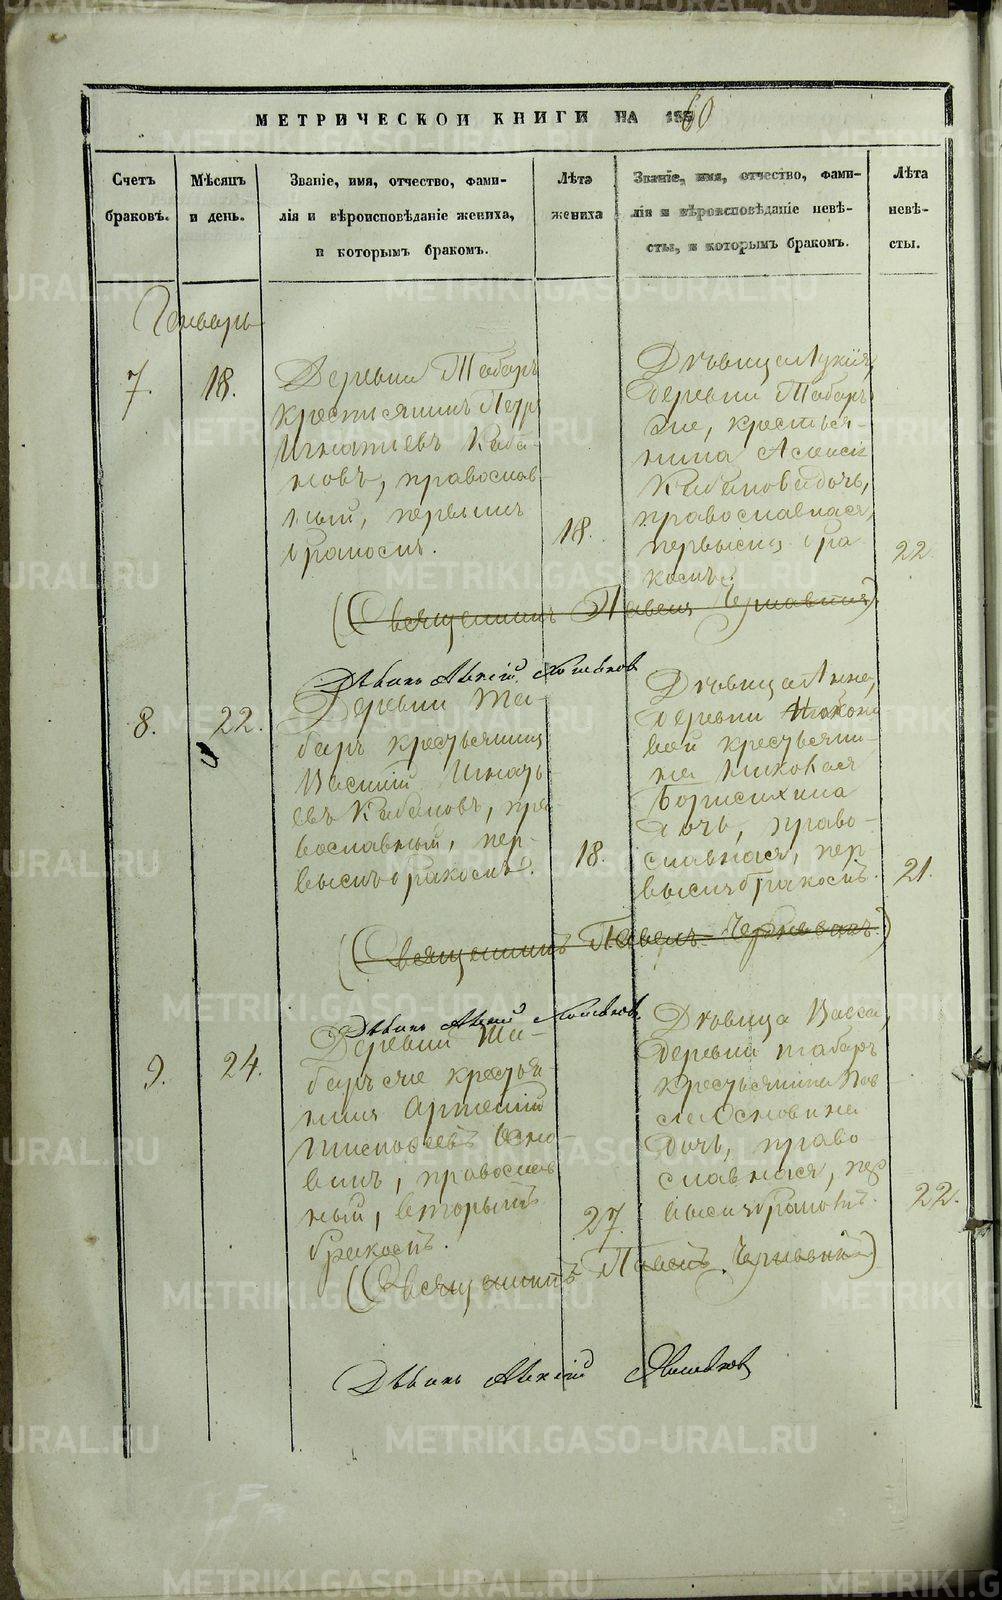 МЕТРИЧЕСКОЙ КНИГИ НА 1860
Счетъ браковъ.
Мѣсяцъ и день.
Званіе, имя, отчество, фами-
лія и вѣроисповѣданіе жениха,
и которымъ бракомъ.
Лѣта
жениха
Званіе, имя, отчество, фами-
лія и вѣроисповѣданіе невѣ-
сты, и которымъ бракомъ.
Лѣта
невѣ-
сты.
Генварь
7.
18.
Деревни Табаръ
крестьянинъ Петръ
Игнатіевъ Каба-
новъ, православ-
ный, первымъ
бракомъ.
18.
Дѣвица
деревни Табаръ
же, крестья-
нина Алексія
Кабанова дочь,
православная,
первымъ бра-
комъ.
22.
(Священникъ Павелъ
Дьконъ Алексій
8.
22.
Деревни Та-
баръ крестьянинъ
Василій Игнать-
евъ Кабановъ, пра-
вославный, пер-
вымъ бракомъ.
18.
Дѣвица Анна,
деревни
вой крестьяни-
на
Борисихина
дочь, право-
славная, пер-
вымъ бракомъ.
21.
(Священникъ Павелъ
Дьконъ Алексій
9.
24.
Деревни Та-
баръ же крестья-
нинъ Артемій
винъ, православ-
ный, вторымъ
бракомъ.
27.
Дѣвица Васса,
деревни Табаръ
крестьянина Пав-
ла Основина
дочь, право
славная, пер
вымъ бракомъ.
22.
(Священникъ Павелъ
Дьконъ Алексій
METRIKI.GASO-URAL.RU